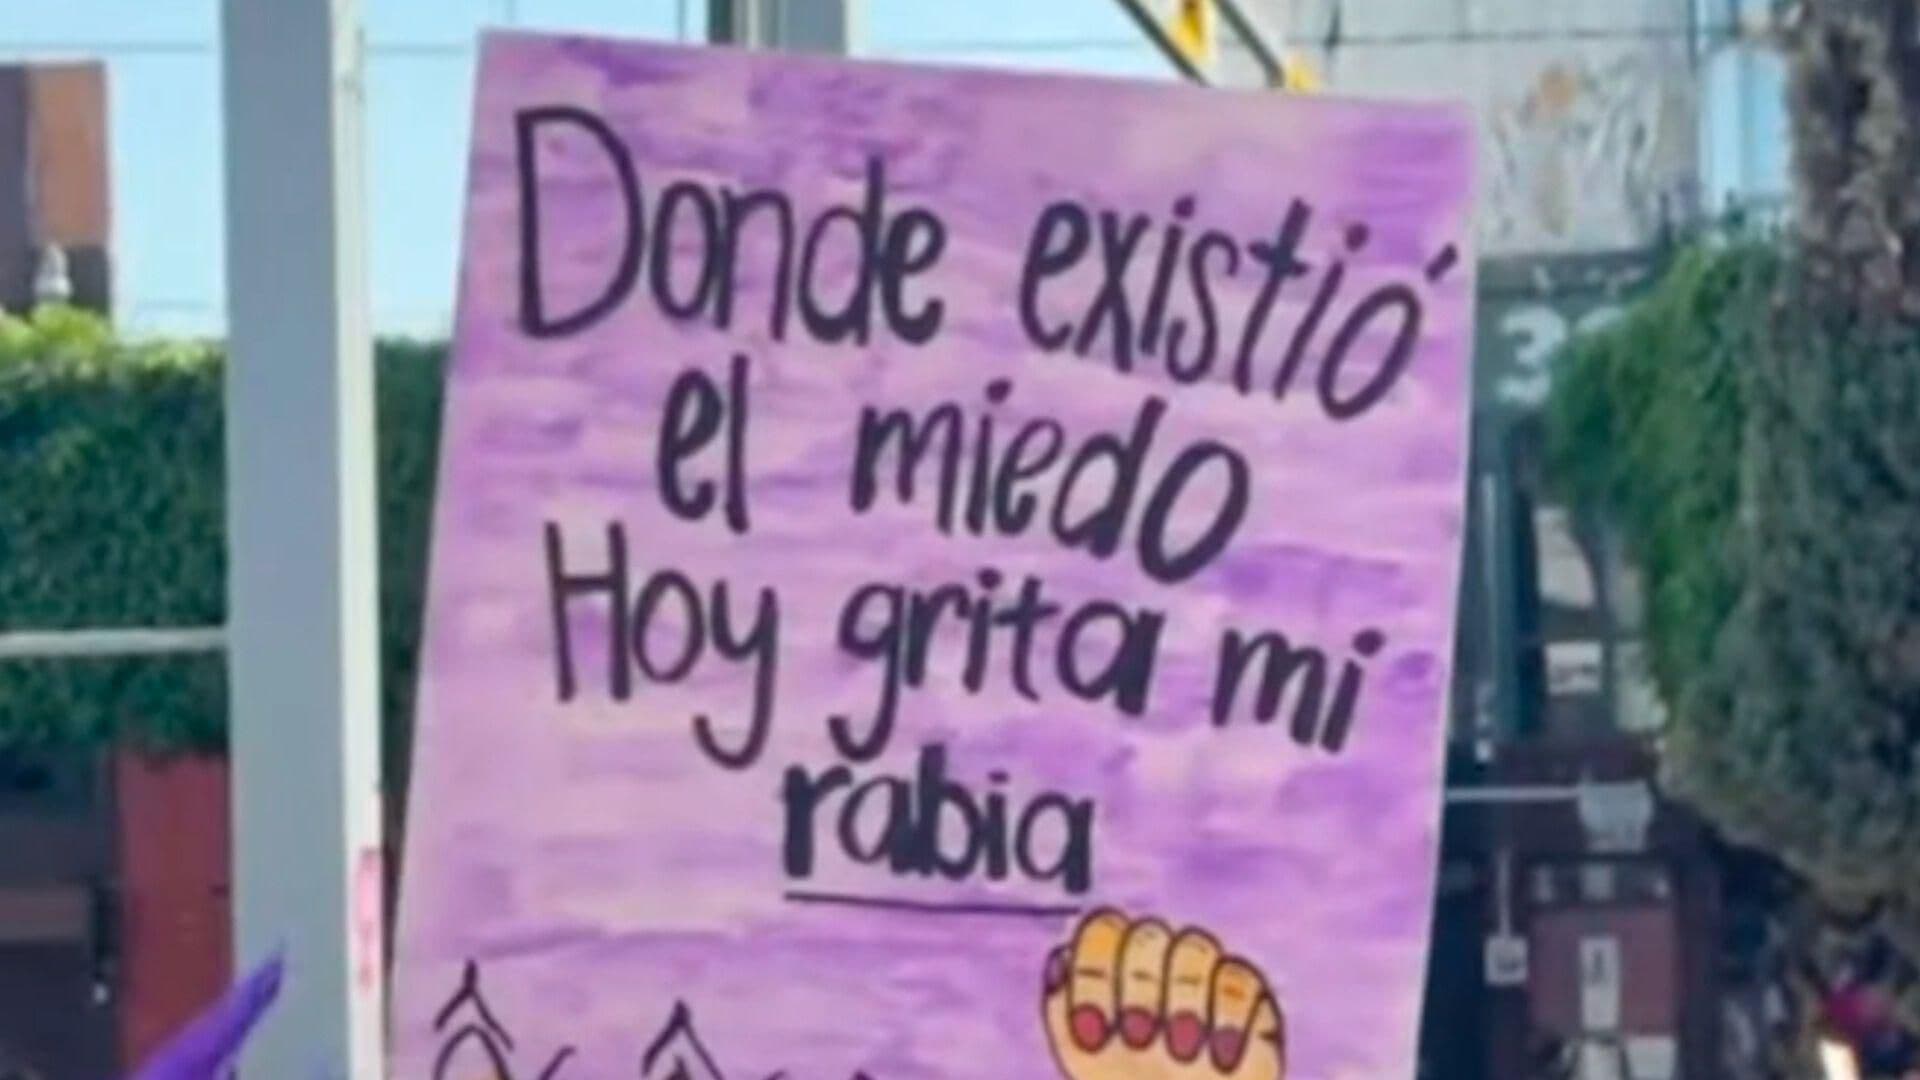 Donde existió
el miedo
Hoy grita mi
rabia